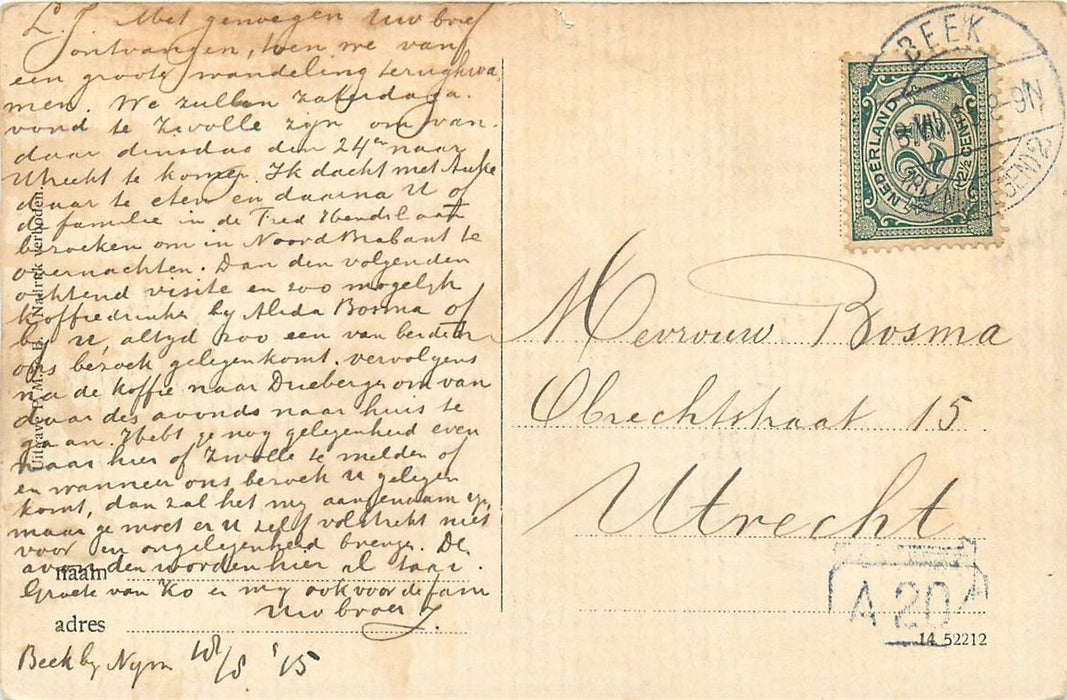 L. J. Met genoegen Uw brief
ontvangen, toen we van
een groote wandeling terugkwa
men. We zullen zaterdaga.
vond te Zwolle zijn om van
daar dinsdag den 24en naar
Utrecht te komen. Ik dacht met
daar te eten en daarna U of
de familie in de Fred Hendrl. aan
bezoeken om in Noord Brabant te
overnachten. Dan den volgenden
ochtend visite en zoo mogelyk
koffiedrinken by Alida Bosma of
by U, altyd zoo een van beiden
ons bezoek gelegen komt. vervolgens
na de koffie naar Driebergen om van
daar des avonds naar huis te
gaan. Hebt je nog gelegenheid even
naar hier of Zwolle te melden of
en wanneer ons bezoek U gelegen
komt, dan zal het my aangenaam zyn
maar ge moet er U zelf volstrekt niet
voor in ongelegenheid brengen. De
avonden worden hier al
Groete van Ko en my ook voor de fam
Uw broer J.
Beek by Nym 18/8 '15
naam
adres
Nadruk verboden.
BEEK
8-9N
NEDERLAND
2½ CENT
Mevrouw Bosma
Obrechtstraat 15.
Utrecht
A 20
14 52212